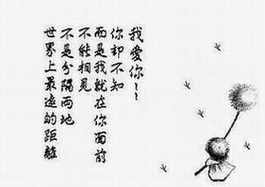 世界上最遠的距離
不是分隔兩地
不能相見
而是我就在你面前
你卻不知
我愛你~~